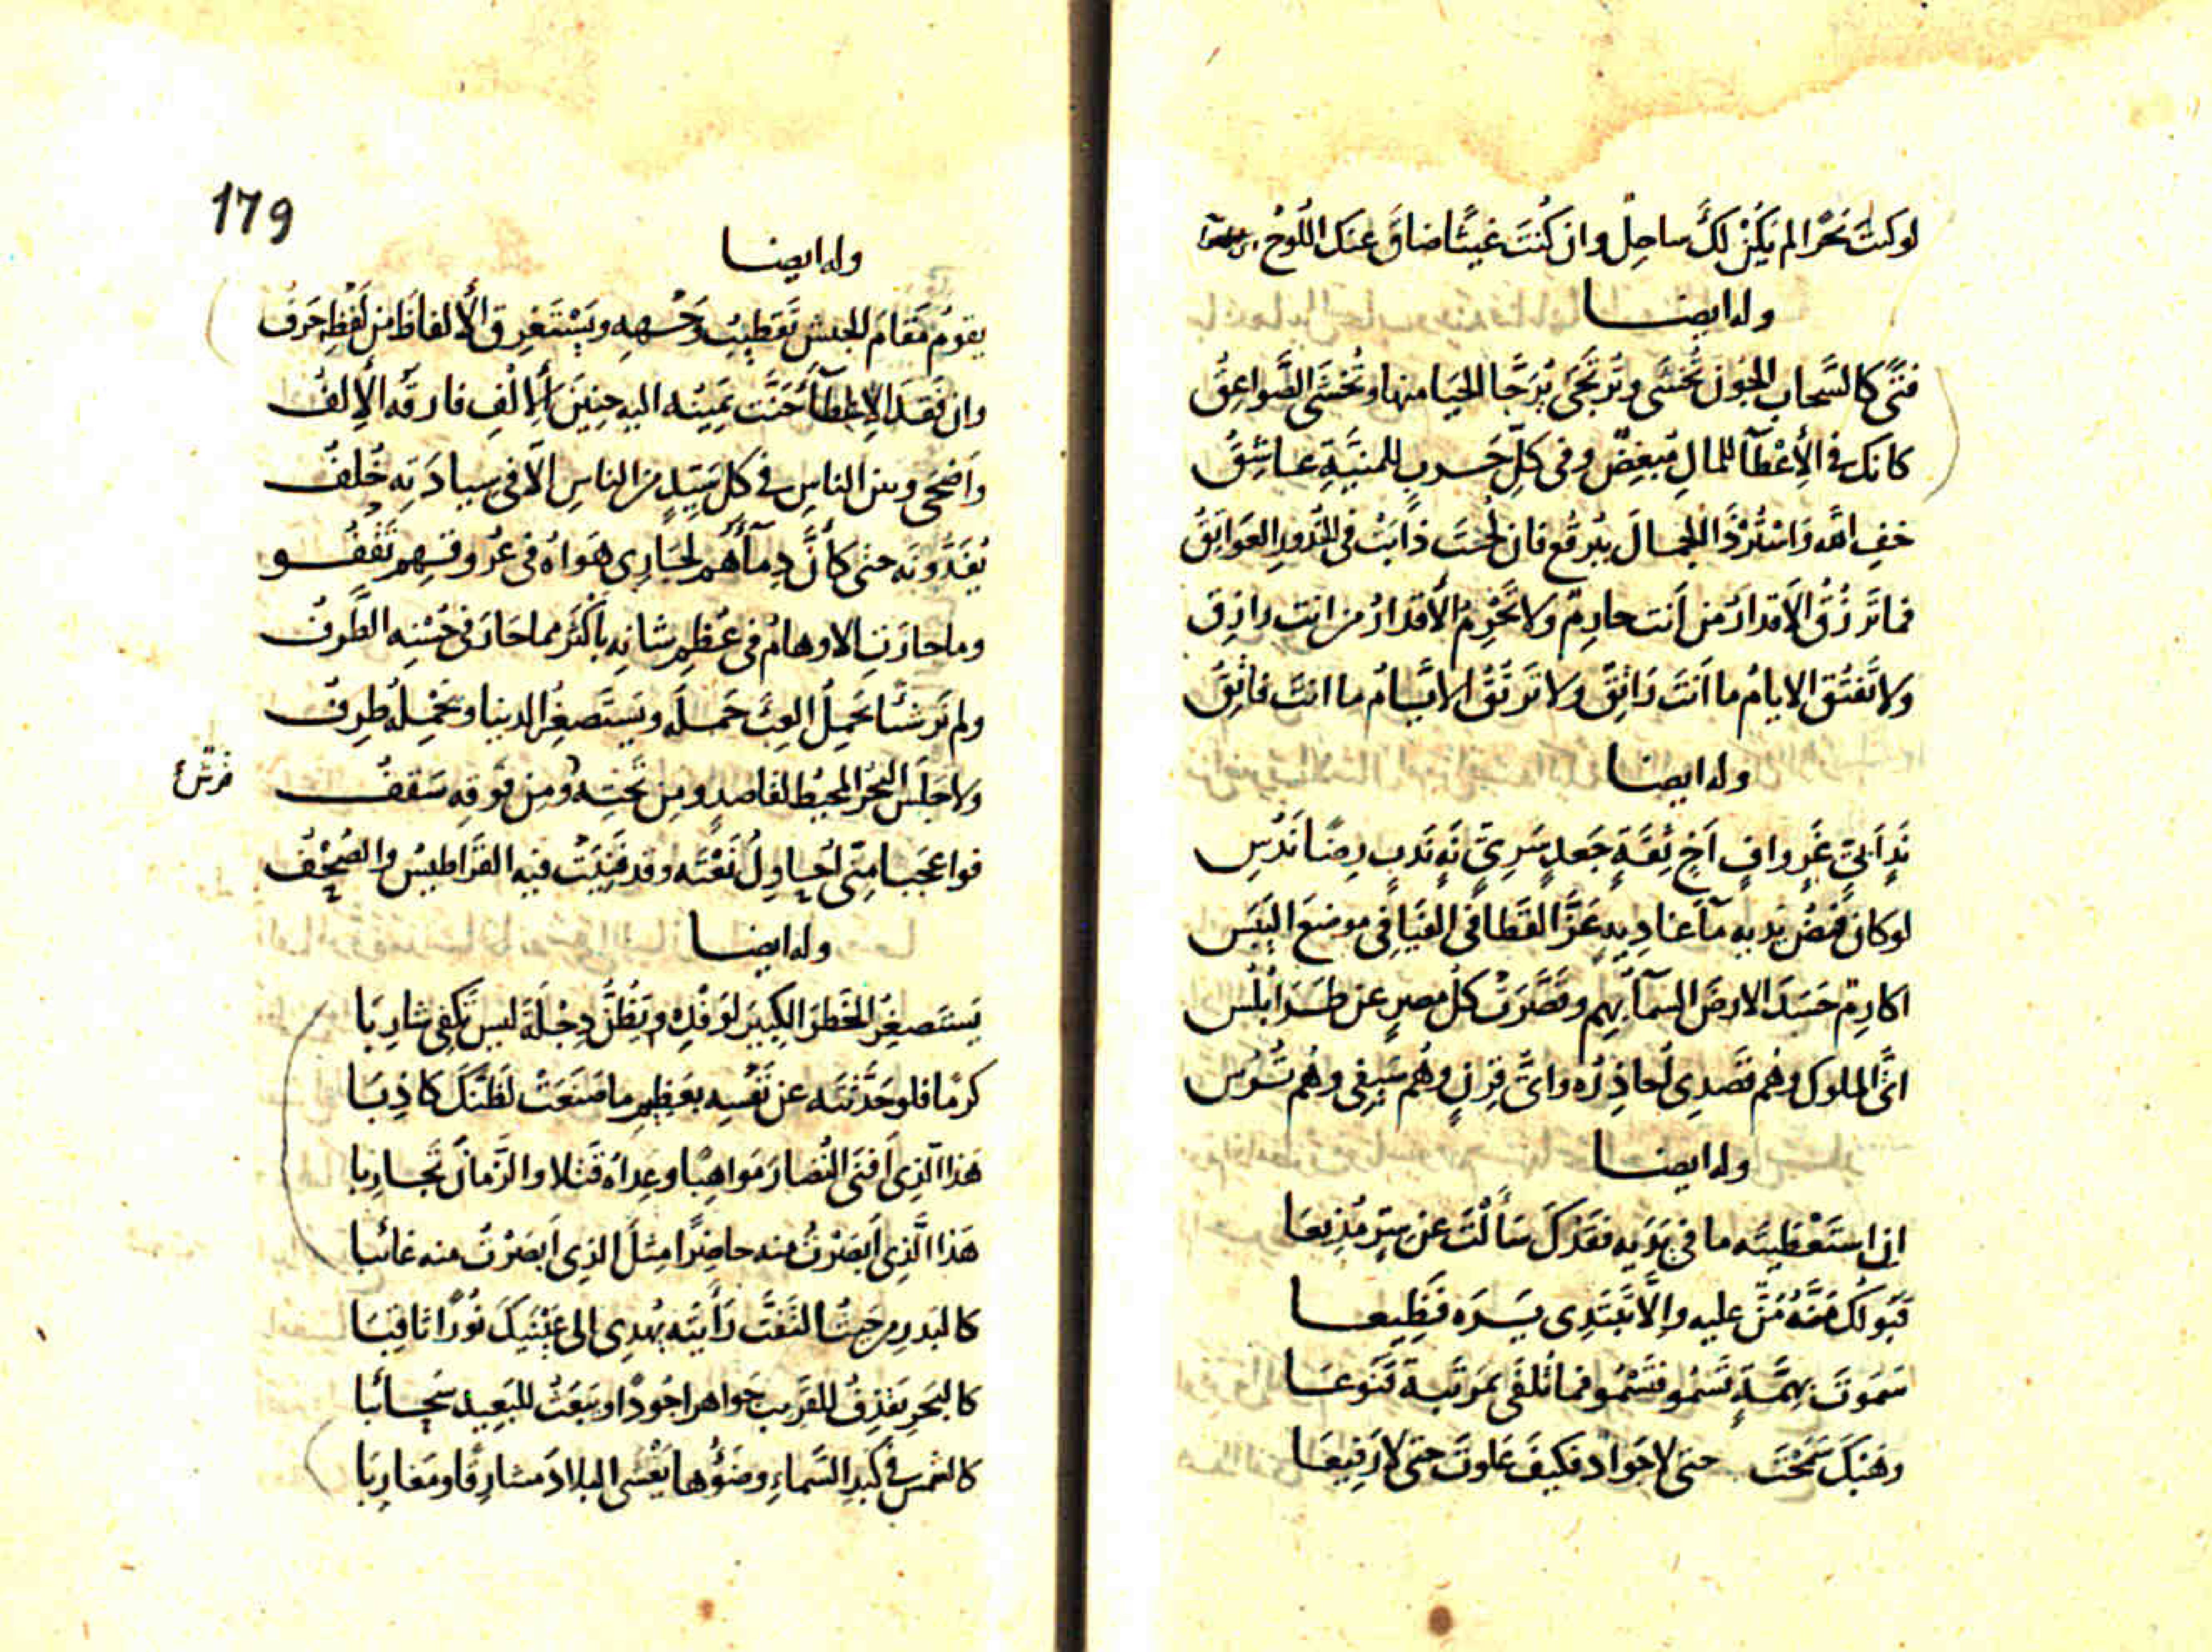 لو كنتَ بَحْرا لم يَكُنْ لكَ ساحِلٌ وان كُنْتَ غيثًا ضاقَ عنك اللُّوحُ
وله ايضا
فتًى كالسَّحابِ الجُون تُخْشَى وتُرْتَجَى يُرَجَّا الحَيَا منها وتُخْشَى الصَّواعِقُ
كانك فى الأِعْطآ للمالِ مُبغِضٌ وفى كلّ حَربٍ للمنيَّةِ عاشِقُ
خفِ اللّه وَاسْتُرْ ذَا الجمالَ ببُرقُعٍ فان لُحتَ ذابَتْ فى الخُدورِ العَواتِقُ
فما تَرزُقُ الأَقدارُ من أنت حارِمٌ ولا تَحْرِمُ الأَقدارُ من انت رازِقُ
ولا تَفتُق الايامُ ما أَنتَ رَاتِقٌ ولا تَرتُقُ الايَّامُ ما انتَ فاتِقُ
وله ايضا
نَدٍ أَبِىٍّ غَرٍ وافٍ اَخٍ ثِقَةٍ جَعدٍ سَرِىٍّ نَهٍ نَدبٍ رِضًا نَدُسِ
لو كان فَيضُ يديه مآءَ غادِيةٍ عَزَّ القَطا فى الفَيَافى موضعَ اليَبَسِ
اكارِمٌ حَسَدَ الارضَ السمآءُ بهِم وقَصَّرَتْ كلُّ مصرٍ عن طَرَابُلُسِ
اىُّ الملوك وهُم قَصدِى اُحاذِرُه واىُّ قِرنٍ وهُم سَيفى وهُم تُرُسى
وله ايضا
اِن استَعْطَيتَه ما فى يَدَيه فقَدْكَ سَأَلْتَ عن سِرٍّ مُذِيعَا
قَبولُكَ مَنَّهُ مَنٌّ عليه والَّا يَبْتَدِى يَرَه فَظِيعا
سَمَوتَ بهِمَّةٍ تَسْمُو فتَسْمُو فما تُلْفَى بمَرتَبةٍ قَنُوعَا
وهَبْكَ سَمَحْتَ حتى لا جَوادٌ فكيفَ عَلوتَ حتى لا رَفِيعَا
179
وله ايضا
يقومُ مَقامَ الجيشِ تَقطِيبُ وَجْهِهِ ويَسْتَغرِق الأَلفاظَ من لَفْظِه حَرفُ
وان فَقَدَ الاِعطآءَ حَنَّت يَمِينُه اليه حنِينَ الأِلْفِ فارقَه الأِلفُ
وأضحى وبين الناسِ فى كل سَيّدٍ من الناسِ الّا فى سيادَتِه خُلفُ
يُفَدُّونَه حتى كأَنَّ دِمآءَهُم لجَارِى هَواهُ فى عُروقِهم تَقْفُو
وما حارَتِ الاوهامُ فى عُظمِ شانِه باكثَر مما حارَ فى حُسْنِه الطَّرفُ
ولم نَر شيئًا يَحْمِلُ العِبَ حَملَه ويَستَصغِرُ الدنيا ويَحْمِلُه طِرفُ
ولا جَلَس البَحْرُ المحِيطُ لقاصدٍ ومِن تَحتِه و من فَوقِه سَقفُ
فرش
فوا عَجَبا مِنّى اُحاوِلُ نَعْتَه وقد فَنِيَتْ فيه القَراطيسُ والصُّحْفُ
وله ايضا
يَستَصغِرُ الخَطَرَ الكبيرَ لوَفْدِه ويَظُنُّ دِجْلَةَ ليس تَكفِى شارِبَا
كرمًا فلو حَدَّثتَه عن نَفسِه بعَظِيمِ ما صَنَعَتْ لَظنَّكَ كاذِبَا
هَذا الَّذِى أَفنَى النُّضارَ مَواهِبًا وعِداهُ قَتلا والزَّمانَ تَجارِبا
هَذا الَّذِى أَبصَرْتُ منه حاضِرًا مِثلَ الذِى أَبصَرْتُ منه غائبا
كالبَدرِ من حَيثُ التَفَتَّ رَأيتَه يُهدِى الى عَيْنَيكَ نُورًا ثاقِبَا
كالبَحرِ يَقذِفُ للقَرِيبِ جَواهرا جُودًا ويَبعَثُ للبَعِيد سَحائبا
كالشمسِ فى كَبِدِ السَّماءِ وضَوْؤُها يَغْشى البلادَ مشارِقًا ومَغارِبَا